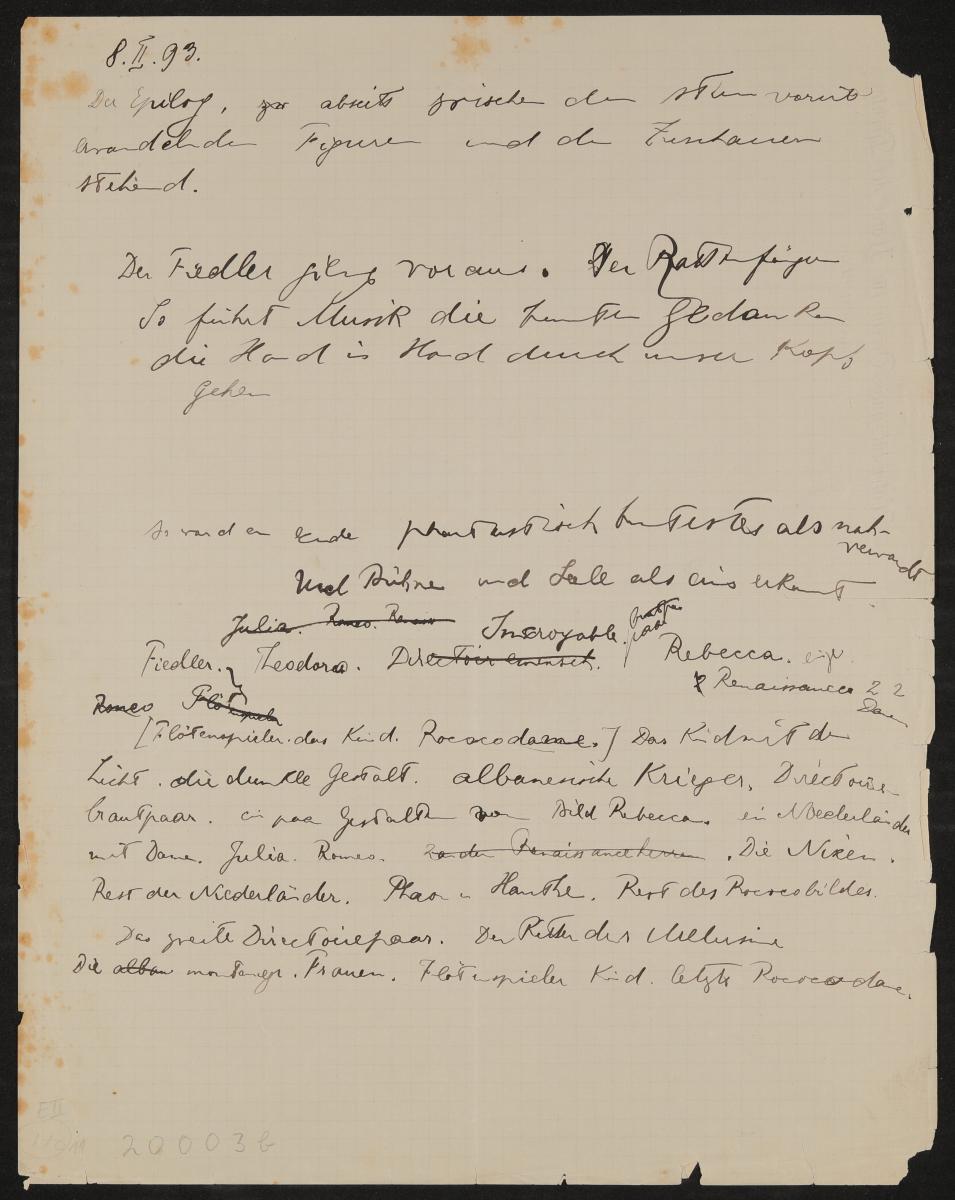 8. II. 93.
Der Epilog, abseits zwischen den stumm vorüber
wandelnden Figuren und den Zuschauern
stehend.
Der Fiedler gieng voraus. Der Rattenfänger
So führt Musik die bunten Gedanken
die Hand in Hand durch unsern Kopf
gehen
so ward am Ende phantastisch buntestes als nah-
verwandt
Und Bühne und Saal als eins erkannt
Julia. Romeo. Renaiss
Incroyable.
Fiedler. Theodora. Directoiremensch. Rebecca.
Renaissance 2 2
Damen
Romeo Flötenspieler
[Flötenspieler. das Kind. Rococodame.] Das Kind mit dem
Licht. die dunkle Gestalt. albanesische Krieger. Directoire-
brautpaar. ein paar Gestalten vom Bild Rebecca. ein Niederländer
mit Dame. Julia. Romeo. Renaissanceherren. Die Nixen.
Rest der Niederländer. Phaon u Hanthe. Rest des Rococobildes.
Das zweite Directoirepaar. Der Ritter der Melusine
Die alban montenegr. Frauen. Flötenspieler Kind. letzte Rococodame.
E II
20003b